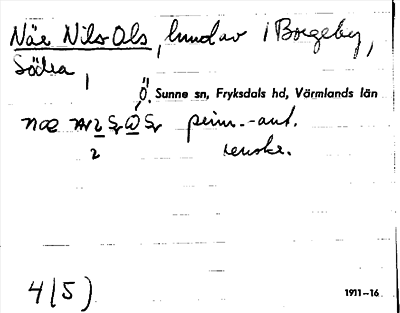 När Nils-Ols, hmd av i Borgeby,
Södra,
Ö. Sunne sn, Fryksdals hd, Värmlands län
prim.-ant.
2
renskr.
4(5)
1911–16